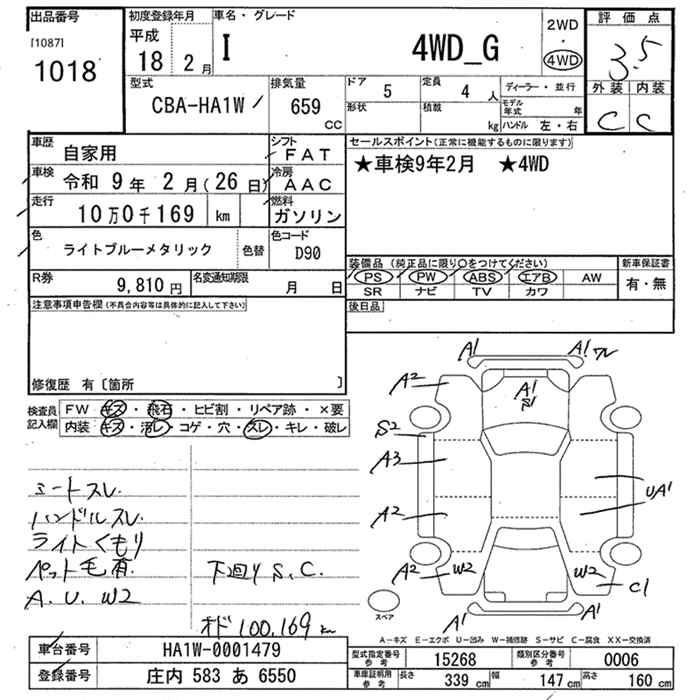 出品番号
[1087]
1018
初度登録年月
平成
18 2月
車名・グレード
I 4WD_G
2WD
・
4WD
評価点
3.5
外装 内装
C C
型式
CBA-HA1W
排気量
659
CC
ドア 5
定員 4 人
形状
積載 kg
ディーラー・並行
モデル年式 年
ハンドル 左・右
車歴
自家用
シフト
FAT
車検 令和 9年 2月(26日)
冷房
AAC
走行 10万0千169 km
燃料
ガソリン
色
ライトブルーメタリック
色替
色コード
D90
R券
9,810円
名変通知期限
月 日
セールスポイント(正常に機能するものに限ります)
★車検9年2月 ★4WD
装備品(純正品に限り○をつけてください)
PS PW ABS エアB AW
SR ナビ TV カワ
新車保証書
有・無
後日品
注意事項申告欄(不具合内容等は具体的に記入して下さい)
修復歴 有〔箇所 〕
検査員記入欄
FW キズ・飛石・ヒビ割・リペア跡・×要
内装 キズ・汚レ・コゲ・穴・スレ・キレ・破レ
シートスレ
ハンドルスレ
ライトくもり
ペット毛有
A.U.W2
下回りS.C.
オド100,169km
A1 A1 ワレ
A2
A1
S1
S2
A3
A2
UA1
A2 W2 W2 C1
A1 A1
スペア
A−キズ E−エクボ U−凹み W−補修跡 S−サビ C−腐食 XX−交換済
車台番号
HA1W-0001479
登録番号
庄内 583 あ 6550
型式指定番号
参考
15268
類別区分番号
参考
0006
車庫証明用
参考
長さ 339 cm
幅 147 cm
高さ 160 cm